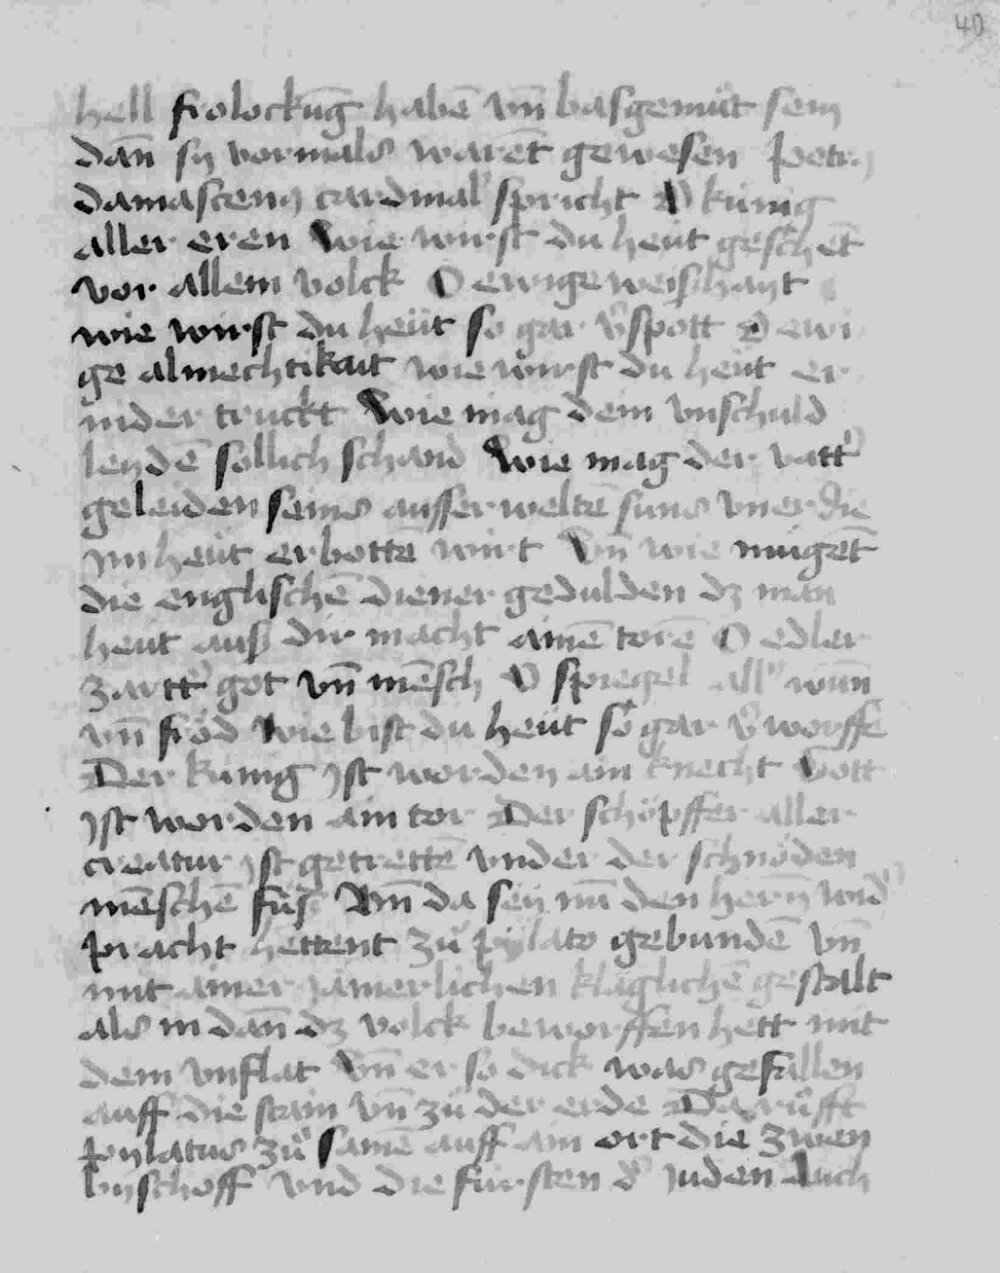 40
hell frolockūg habē vn̄ basgemüt sein
dan̄ sy vormals warēt gewesen Petrꝯ
damascenꝯ cardinal spricht O künig
aller eren Wie wirst du heüt geschēt
vor allem volck O ewige weishayt
wie wirst du heüt so gar v̓spott O ewi
ge almechtikait wie wirst du heüt er
nider truckt Wie mag dein vnschuld
leydē sollich schand Wie mag der vatt̓
geleiden seins ausserweltē suns vner die
im heüt erbottē wirt Vn̄ wie mügēt
die englischē diener gedulden dz man
heüt auß dir macht ainē torē O edler
zartt̓ got vn̄ mēsch O spiegel all̓ wun̄
vn̄ fröd wie bist du heüt so gar v̓worffē
Der künig ist worden ain knecht Gott
ist worden ain tor Der schöpffer aller
creatur ist getrettē vnder der schnöden
mēschē füs Vn̄ da sey nū den hern̄ wid̓
pracht hettent zů pylato gebundē vn̄
mit ainer iämerlichen kläglichē gestalt
als in dan̄ dz volck beworffen hett mit
dem vnflat Vn̄ er so dick was gefallen
auff die stain vn̄ zů der erde Da růfft
pylatus zů samē auff ain ort die zwen
byschoff vnd die fürsten d̓ juden Auch